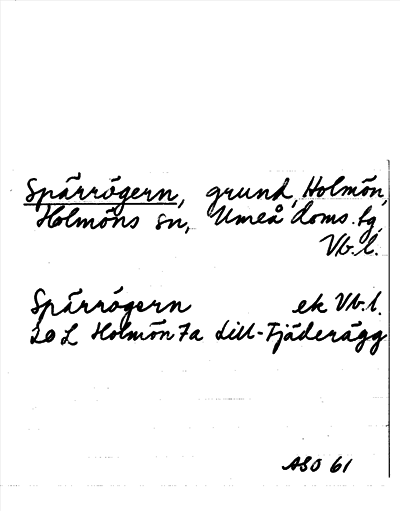 Spärrögern, grund, Holmön,
Holmöns sn, Umeå doms.tg,
Vb.l.
Spärrögern ek Vb.l.
20 L Holmön 7a Lill-Fjäderägg
ASO 61